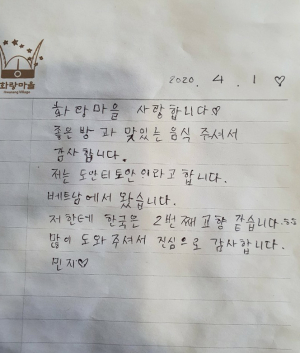 화랑마을
2020. 4. 1 ♡
화랑마을 사랑합니다♡
좋은 방과 맛있는 음식 주셔서
감사합니다.
저는 도안티도안 이라고 합니다.
베트남에서 왔습니다.
저한테 한국은 2번째 고향 같습니다.
많이 도와주셔서 진심으로 감사합니다.
민지♡